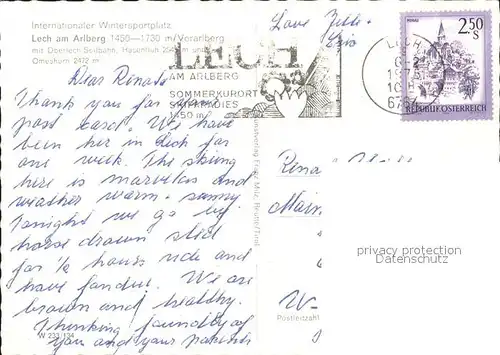 Internationaler Wintersportplatz
Lech am Arlberg 1450—1730 m/Vorarlberg
mit Oberlech Seilbahn, Hasenfluh
Omeshorn
LECH
AM ARLBERG
SOMMERKURORT
SKIPARADIES
1450 m
Love
2.50 S
REPUBLIK ÖSTERREICH
LECH
Dear Renate
Thank you for your
post card. We have
been her in Lech for
one week. The skiing
here is marvelous and
weather warm + sunny.
Tonight we go by
horse drawn sled
for ½ hours ride and
have fondue. We are
brown and healthy.
Thinking foundly of
you and your parents
W 233/134
Rena
Main
W-
Postleitzahl
privacy protection
Datenschutz